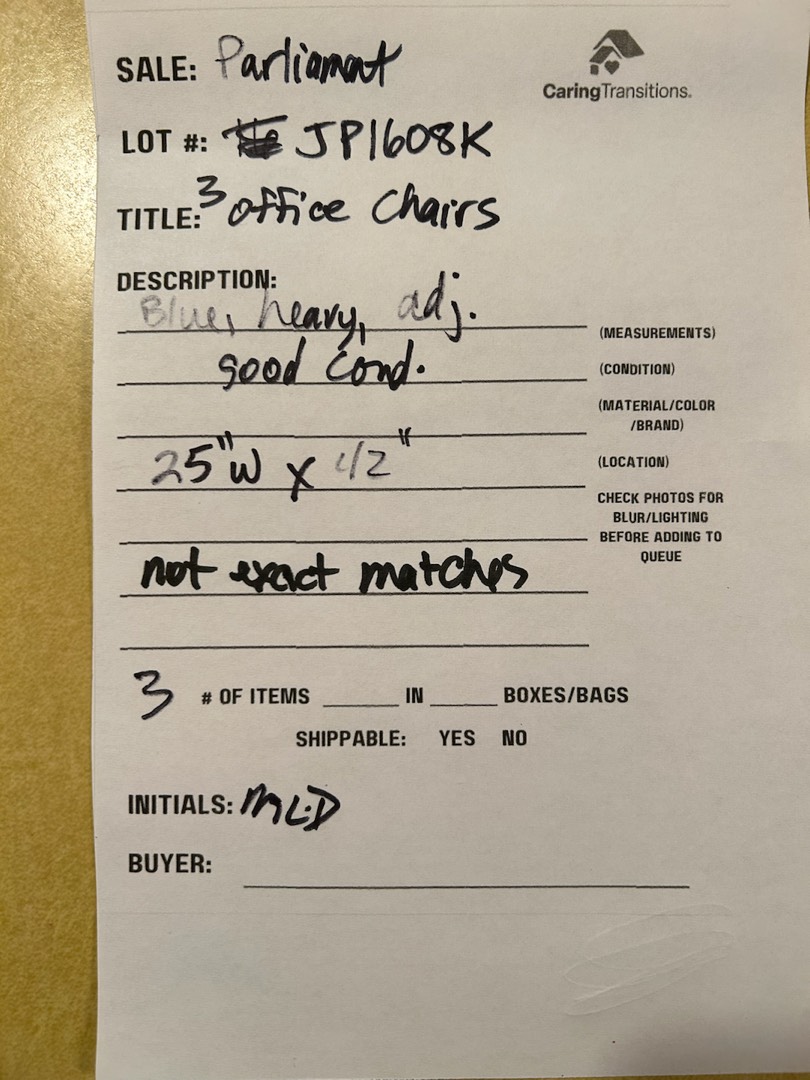 SALE: Parliament
CaringTransitions.
LOT #: JP1608K
TITLE: 3 office Chairs
DESCRIPTION:
Blue, heavy, adj.
(MEASUREMENTS)
good Cond.
(CONDITION)
(MATERIAL/COLOR
/BRAND)
25"W x 42"
(LOCATION)
CHECK PHOTOS FOR
BLUR/LIGHTING
BEFORE ADDING TO
QUEUE
not exact matches
3 # OF ITEMS ______ IN ______ BOXES/BAGS
SHIPPABLE: YES NO
INITIALS: MLD
BUYER: